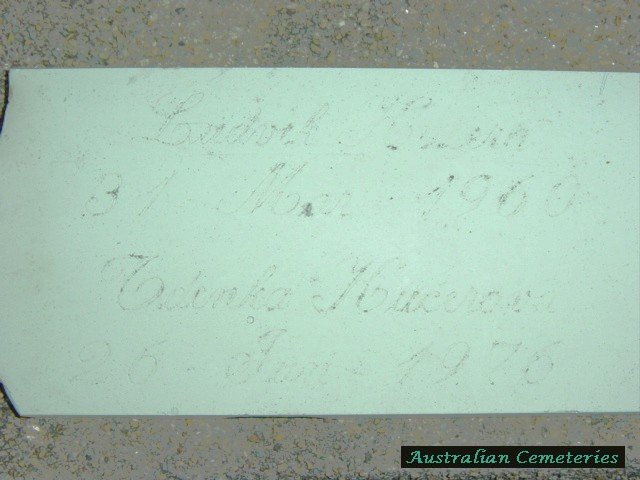 Ludvik Kucera
31 Mar 1960
Zdenka Kučerová
26 June 1976
Australian Cemeteries